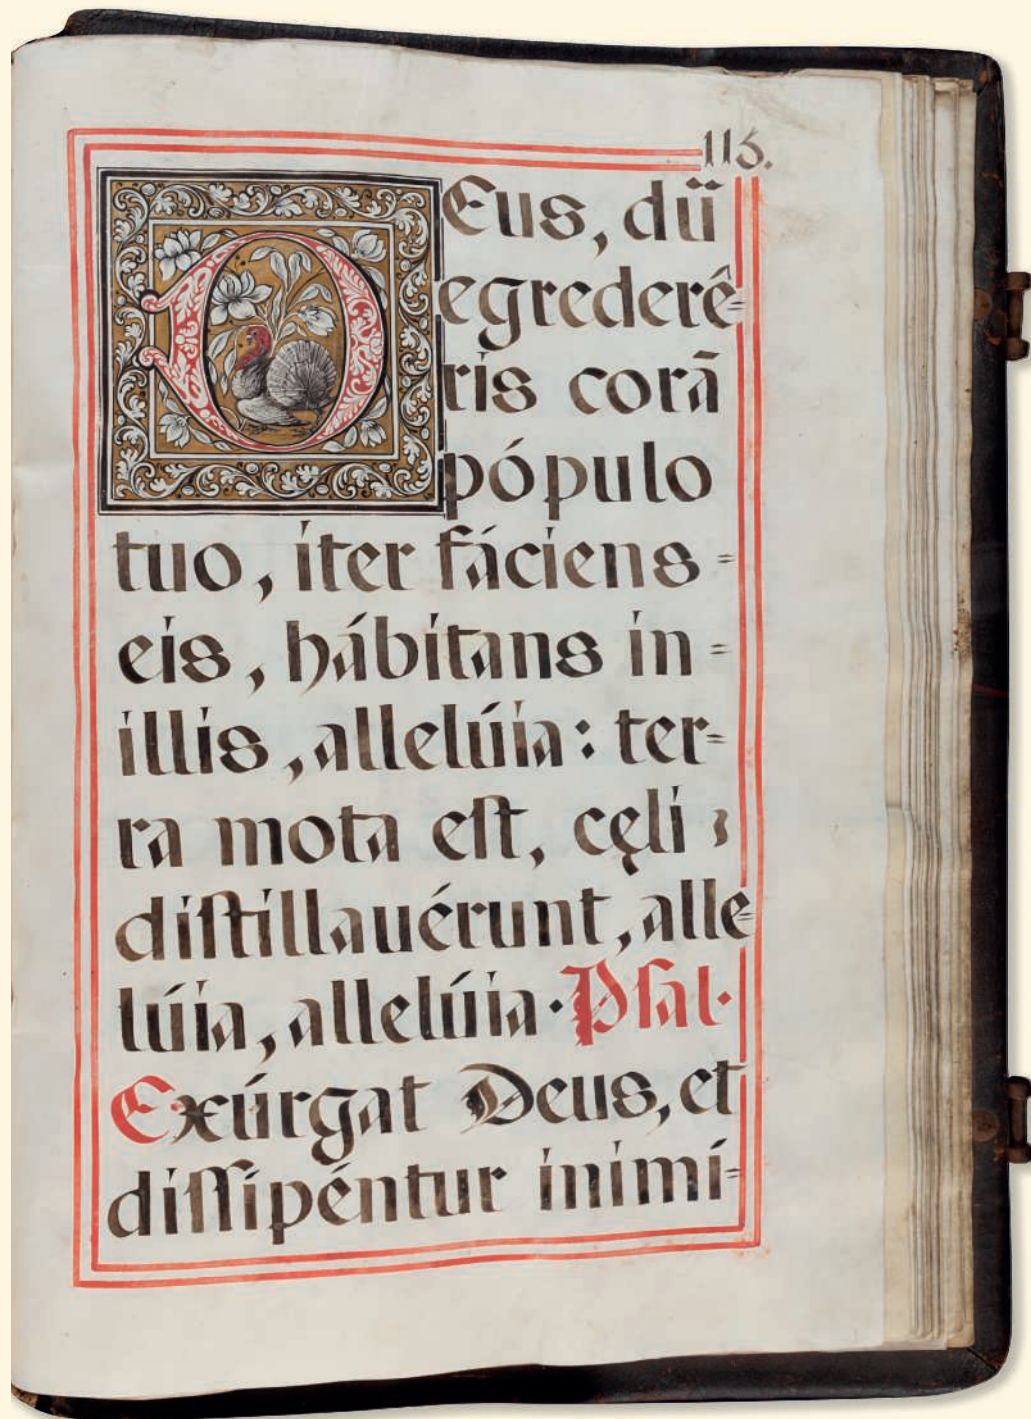 115.
DEus, dū
egrederê=
ris corā
pópulo
tuo, iter fáciens=
eis, hábitans in=
illis, allelúia: ter=
ra mota eſt, cęli
diſtillauérunt, alle=
lúia, allelúia· Pſal·
Exúrgat Deus, et
diſſipéntur inimí=